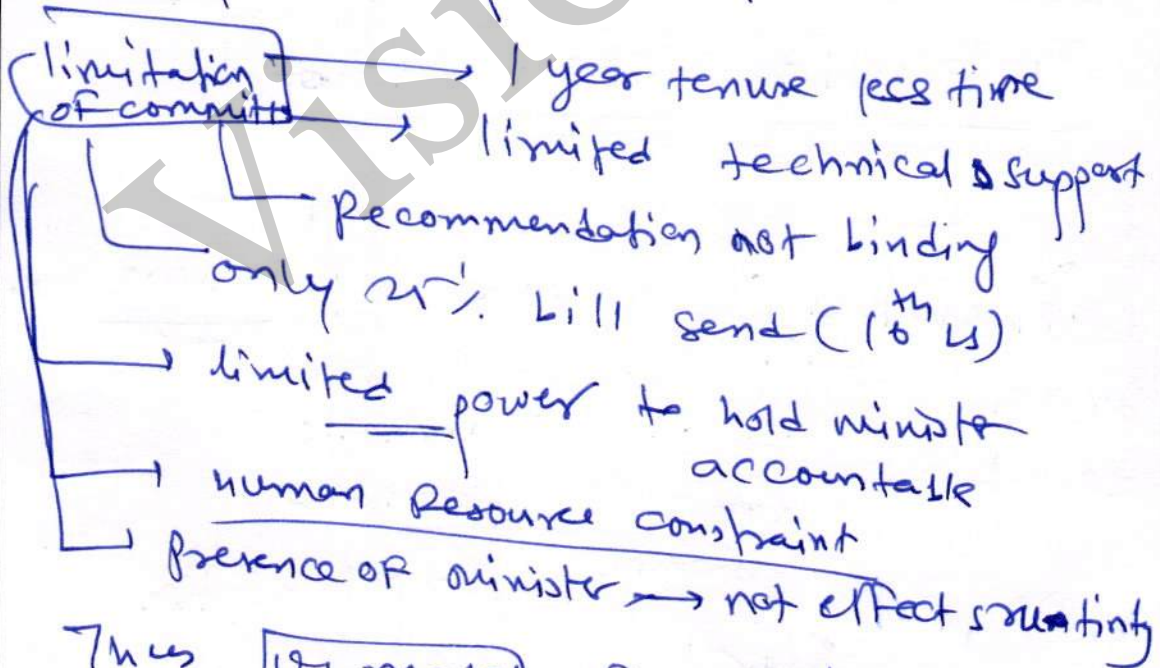 limitation → 1 year tenure less time
of committs → limited technical support
Recommendation not binding
only 25% bill send (16th LS)
→ limited power to hold minister
accountable
→ human Resource constraint
→ Presence of minister → not effect scruntinty
Thus
Visio